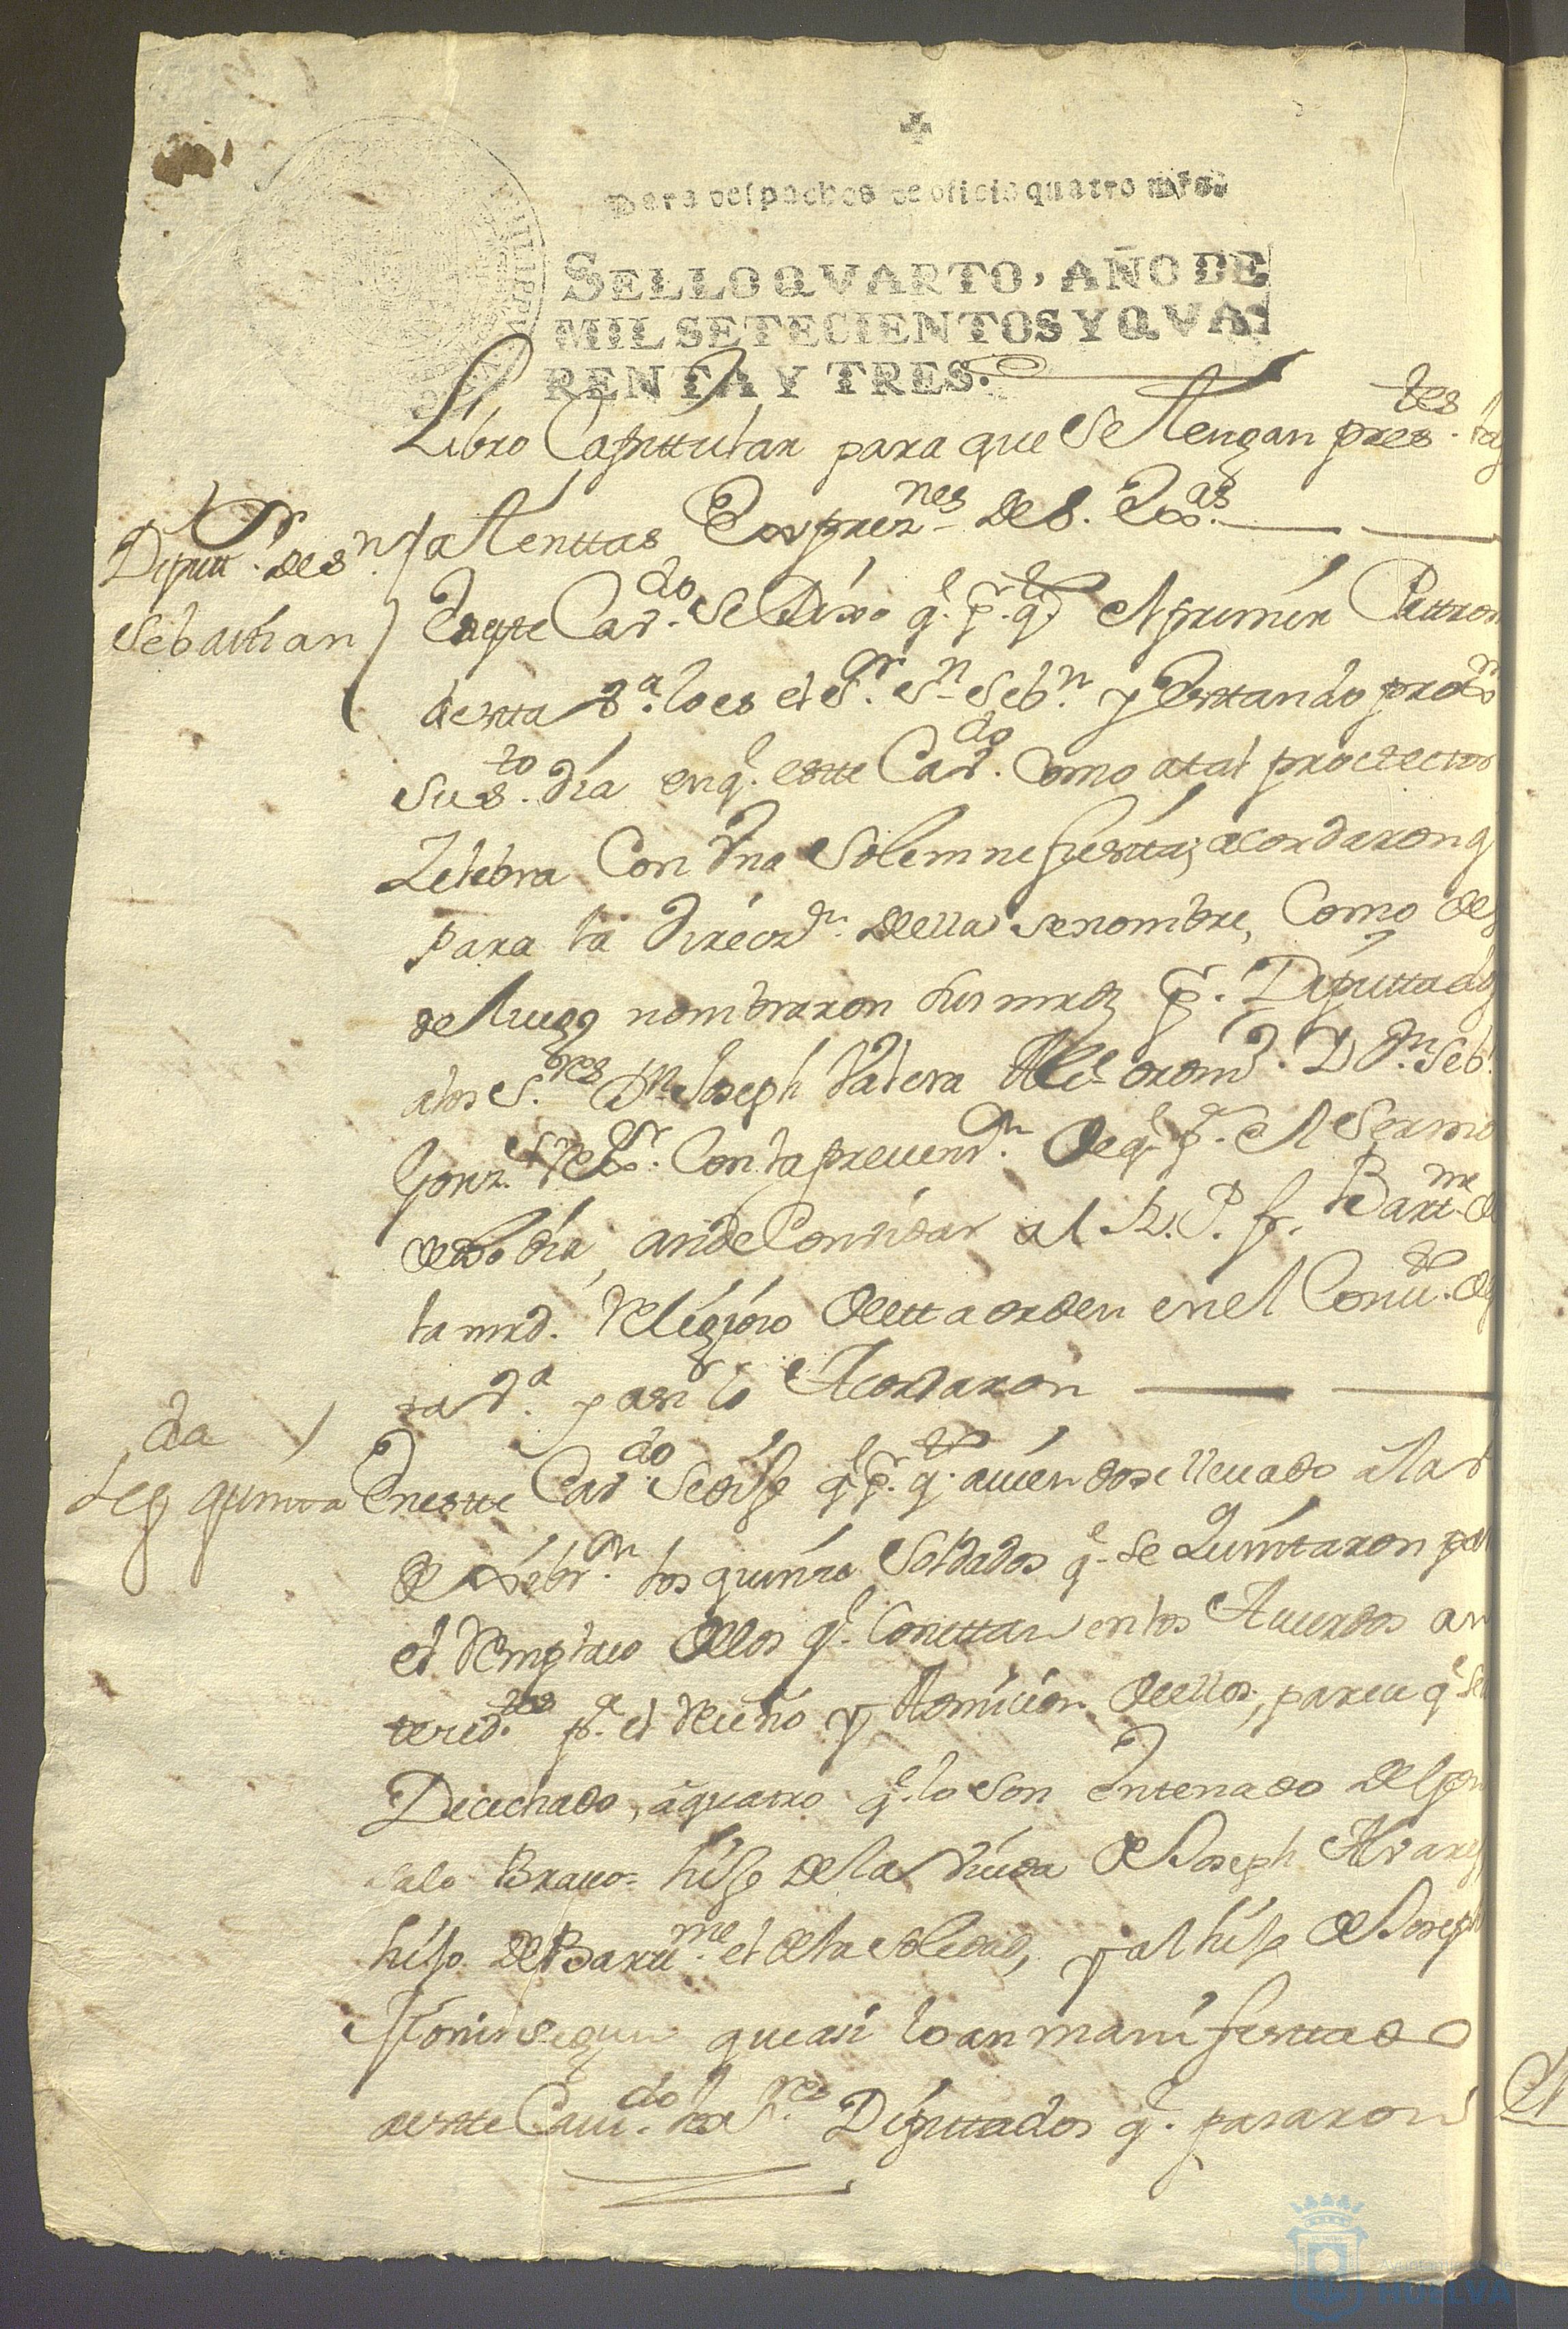 Para despachos de oficio quatro mrs.
SELLO QVARTO, AÑO DE
MIL SETECIENTOS Y QVA
RENTA Y TRES.
Libro Capittular para que se tengan pres.tes
Diputt.r de Sn.
Sebasttian
attenttas Exprez.nes de S. Exas.
En este Cav.do se Dixo q.e p.r q.to el primer Pattron
desta V.a lo es el S.r Sn. Seb.n y Estando proxo
Su S.to dia en q.e este Cav.do Como a tal protector
Zelebra Con Una Solemne fiestta; acordaron q
para la direcz.n della se nombre, Como des
de luego nombraron sus mrds p.r Diputtados
a los S.res Dn. Joseph Valera Alc.e ordin.o D.n Seb.
Gonz. Rex.r Con la prevenz.n de q.e p.a el Sermon
de dho dia, an de Convidar al R. P. fr. Bartt.me de
la mrd. Religioso de etta orden en el Conv.to de
ta V.a y asi lo Acordaron
Seg.da quinta
En este Cav.do se dijo q.e p.r q.to aviendose llevado a la V
de los quinze Soldados q.e se Quinttaron para
el Remplazo de los q.e Consttan en los Acuerdos an
tered.tes p.a el Reciuo y Admicion de ellos, parece q.e se
Decechado, a quatro q.e lo son Entenado de Gon
salo Bravo= hijo de la Viuda de Joseph Alvarez
hijo de Bartt.me el de la Soledad, y al hijo de Joseph
que asi lo an manifesttado
a este Cav.do los S.res Diputtados q.e pasaron
HUELVA